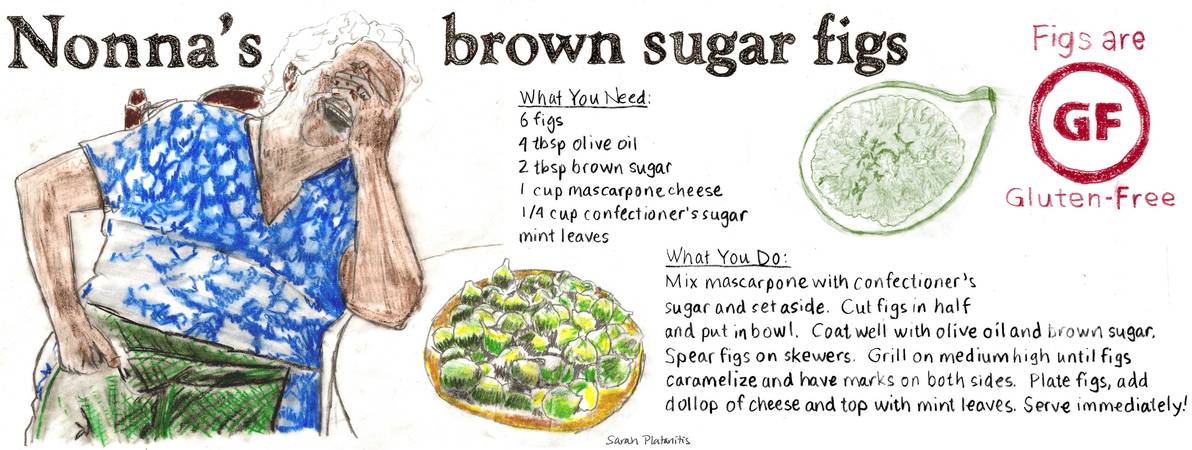 Nonna's brown sugar figs
What You Need:
6 figs
4 tbsp olive oil
2 tbsp brown sugar
1 cup mascarpone cheese
1/4 cup confectioner's sugar
mint leaves
Figs are
GF
Gluten-Free
What You Do:
Mix mascarpone with confectioner's
sugar and set aside. Cut figs in half
and put in bowl. Coat well with olive oil and brown sugar.
Spear figs on skewers. Grill on medium high until figs
caramelize and have marks on both sides. Plate figs, add
dollop of cheese and top with mint leaves. Serve immediately!
Sarah Platanitis